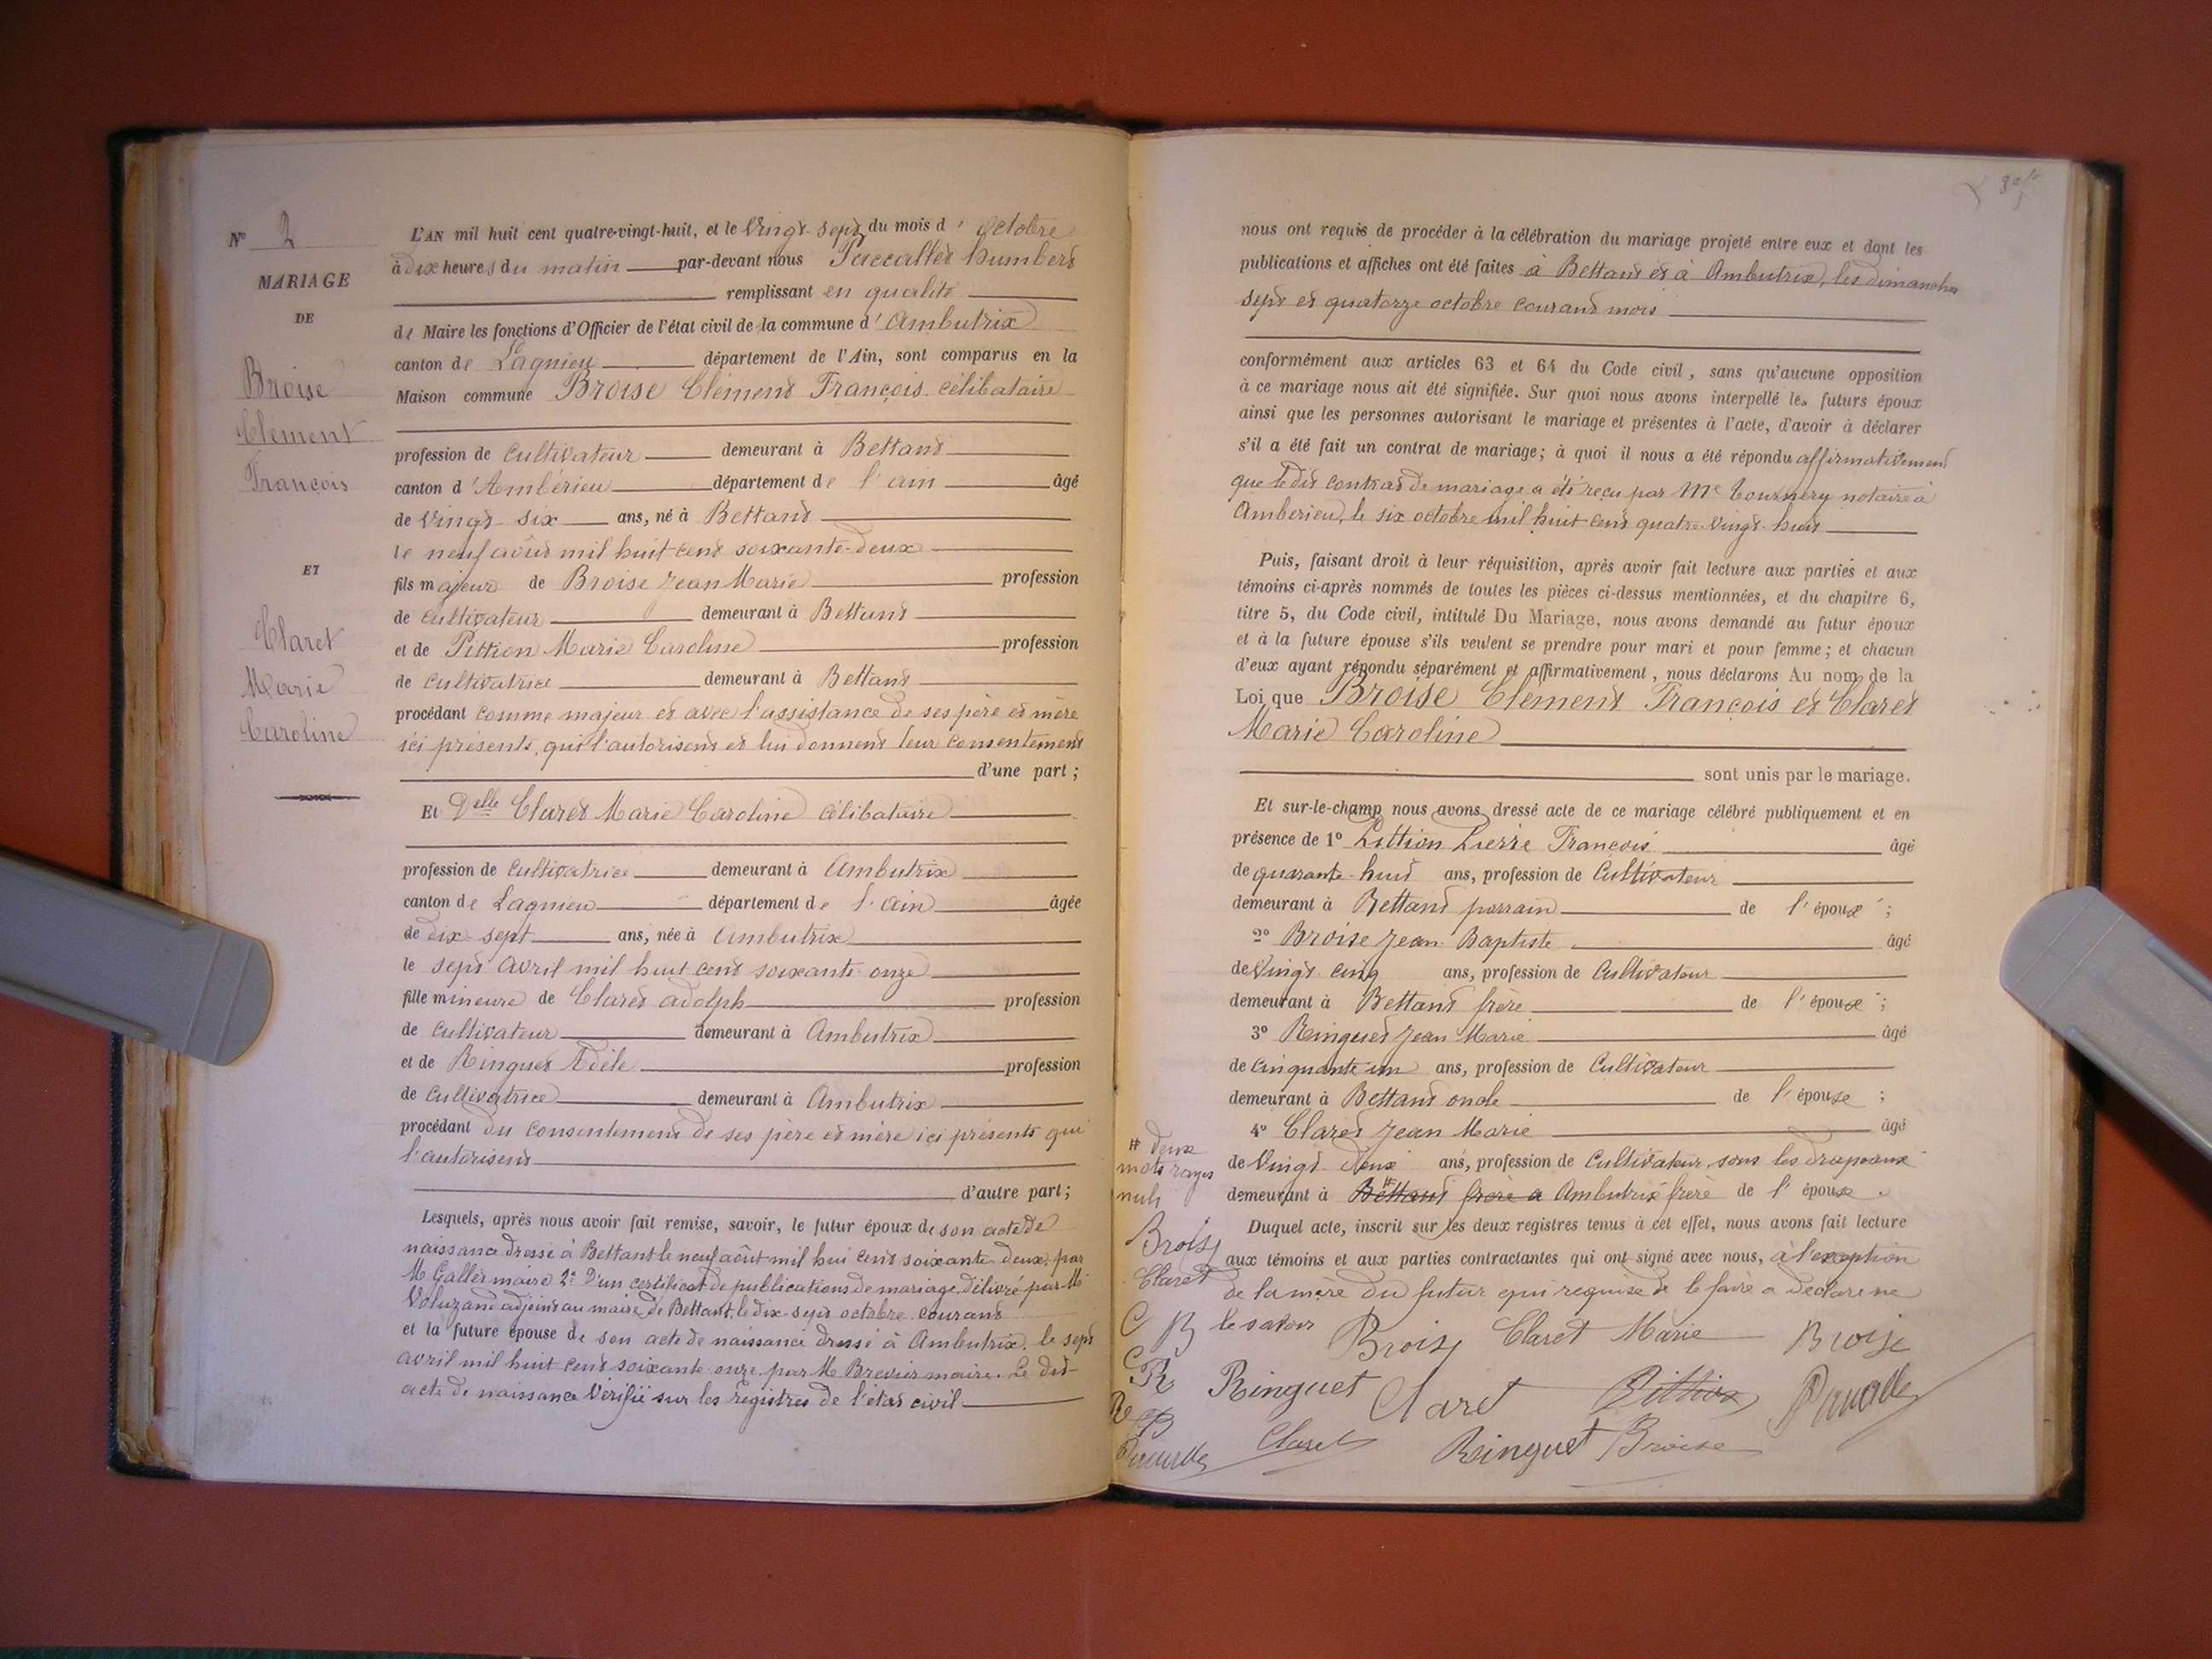 N° 2
MARIAGE
DE
Broise
Clément
François
ET
Claret
Marie
Caroline
L'AN mil huit cent quatre-vingt-huit, et le Vingt-sept du mois d' octobre
à dix heures du matin par-devant nous Paccallet humbert
remplissant en qualité
de Maire les fonctions d'Officier de l'état civil de la commune d' Ambutrix
canton de Lagnieu département de l'Ain, sont comparus en la
Maison commune Broise Clément François célibataire
profession de cultivateur demeurant à Bettant
canton d'Ambérieu département de l'ain âgé
de vingt six ans, né à Bettant
le neuf août mil huit cent soixante-deux
fils majeur de Broise Jean Marie profession
de cultivateur demeurant à Bettant
et de Pittion Marie Caroline profession
de cultivatrice demeurant à Bettant
procédant comme majeur et avec l'assistance de ses père et mère
ici présents, qui l'autorisent et lui donnent leur consentement
d'une part ;
Et Delle Claret Marie Caroline célibataire
profession de cultivatrice demeurant à Ambutrix
canton de Lagnieu département de l'ain âgée
de dix-sept ans, née à Ambutrix
le sept avril mil huit cent soixante-onze
fille mineure de Claret adolph profession
de cultivateur demeurant à Ambutrix
et de Ringuet Adèle profession
de cultivatrice demeurant à Ambutrix
procédant du consentement de ses père et mère ici présents qui
l'autorisent
d'autre part ;
Lesquels, après nous avoir fait remise, savoir, le futur époux de son acte de
naissance dressé à Bettant le neuf août mil hui cent soixante-deux, par
M Gallet maire 2° D'un certificat de publications de mariage délivré par M
Voluzand adjoint au maire de Bettant, le dix-sept octobre courant
et la future épouse de son acte de naissance dressé à Ambutrix, le sept
avril mil huit cent soixante-onze, par M Brevier maire. Le dit
acte de naissance vérifié sur les registres de l'état civil
nous ont requis de procéder à la célébration du mariage projeté entre eux et dont les
publications et affiches ont été faites à Bettant et à Ambutrix, les dimanches
sept et quatorze octobre courant mois
conformément aux articles 63 et 64 du Code civil, sans qu'aucune opposition
à ce mariage nous ait été signifiée. Sur quoi nous avons interpellé les futurs époux
ainsi que les personnes autorisant le mariage et présentes à l'acte, d'avoir à déclarer
s'il a été fait un contrat de mariage; à quoi il nous a été répondu affirmativement
que le dit contrat de mariage a été reçu par Me Tournery notaire à
Amberieu, le six octobre mil huit cent quatre-vingt-huit
Puis, faisant droit à leur réquisition, après avoir fait lecture aux parties et aux
témoins ci-après nommés de toutes les pièces ci-dessus mentionnées, et du chapitre 6,
titre 5, du Code civil, intitulé Du Mariage, nous avons demandé au futur époux
et à la future épouse s'ils veulent se prendre pour mari et pour femme; et chacun
d'eux ayant répondu séparément et affirmativement, nous déclarons Au nom de la
Loi que Broise Clément François et Claret
Marie Caroline
sont unis par le mariage.
Et sur-le-champ nous avons dressé acte de ce mariage célébré publiquement et en
présence de 1° Pittion Pierre François âgé
de quarante-huit ans, profession de Cultivateur
demeurant à Bettant parrain de l'époux ;
2° Broise Jean Baptiste âgé
de Vingt-cinq ans, profession de Cultivateur
demeurant à Bettant frère de l'époux ;
3° Ringuet Jean Marie âgé
de cinquante-un ans, profession de Cultivateur
demeurant à Bettant oncle de l'épouse ;
4° Claret Jean Marie âgé
de Vingt-deux ans, profession de Cultivateur, sous les drapeaux
demeurant à Bettant frère a Ambutrix frère de l'épouse.
# deux
mots rayés
nuls
Duquel acte, inscrit sur les deux registres tenus à cet effet, nous avons fait lecture
aux témoins et aux parties contractantes qui ont signé avec nous, à l'exception
de la mère du futur qui requise de le faire a déclaré ne
le savoir
Broise Claret Marie Broise
Ringuet Claret Pittion
Claret Ringuet Broise
Broise
Claret
C B
C
R
R